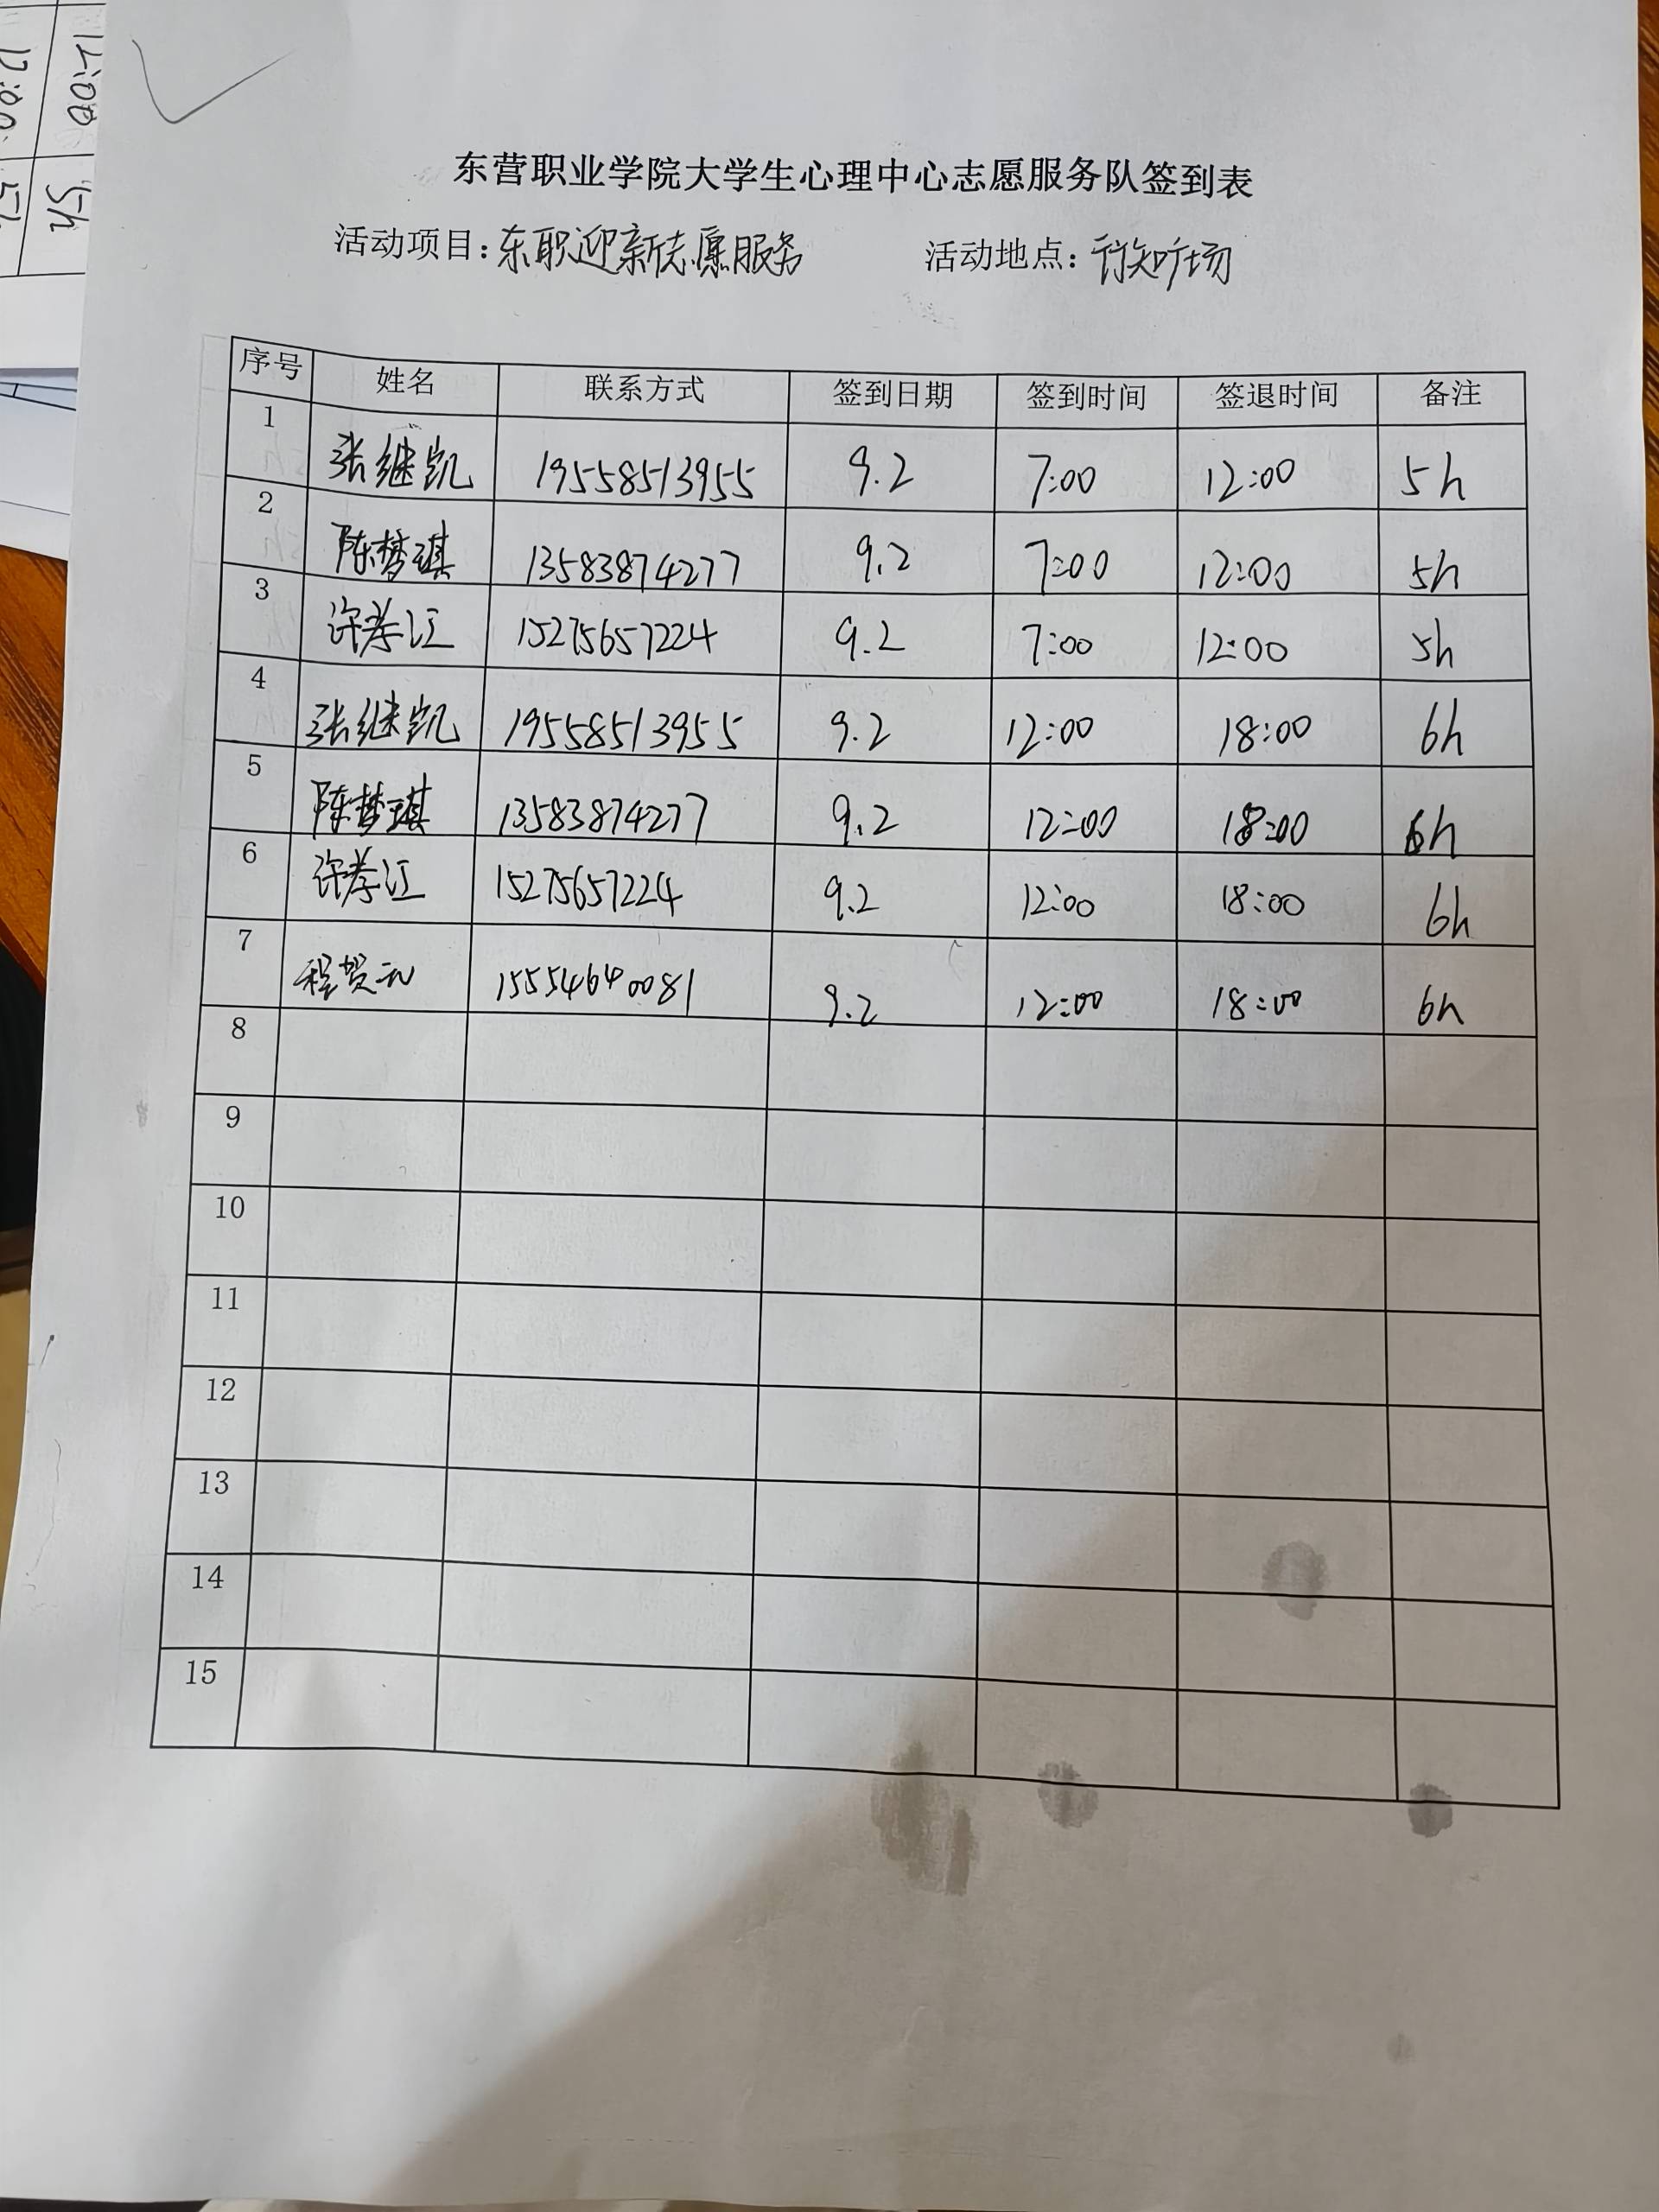 东营职业学院大学生心理中心志愿服务队签到表
活动项目：东职迎新志愿服务 活动地点：行知广场
序号 姓名 联系方式 签到日期 签到时间 签退时间 备注
1 张继凯 19558513955 9.2 7:00 12:00 5h
2 陈梦琪 13583874277 9.2 7:00 12:00 5h
3 许孝江 15275657224 9.2 7:00 12:00 5h
4 张继凯 19558513955 9.2 12:00 18:00 6h
5 陈梦琪 13583874277 9.2 12:00 18:00 6h
6 许孝江 15275657224 9.2 12:00 18:00 6h
7 程贺元 15554640081 9.2 12:00 18:00 6h
8
9
10
11
12
13
14
15
12:00
5h
12:00